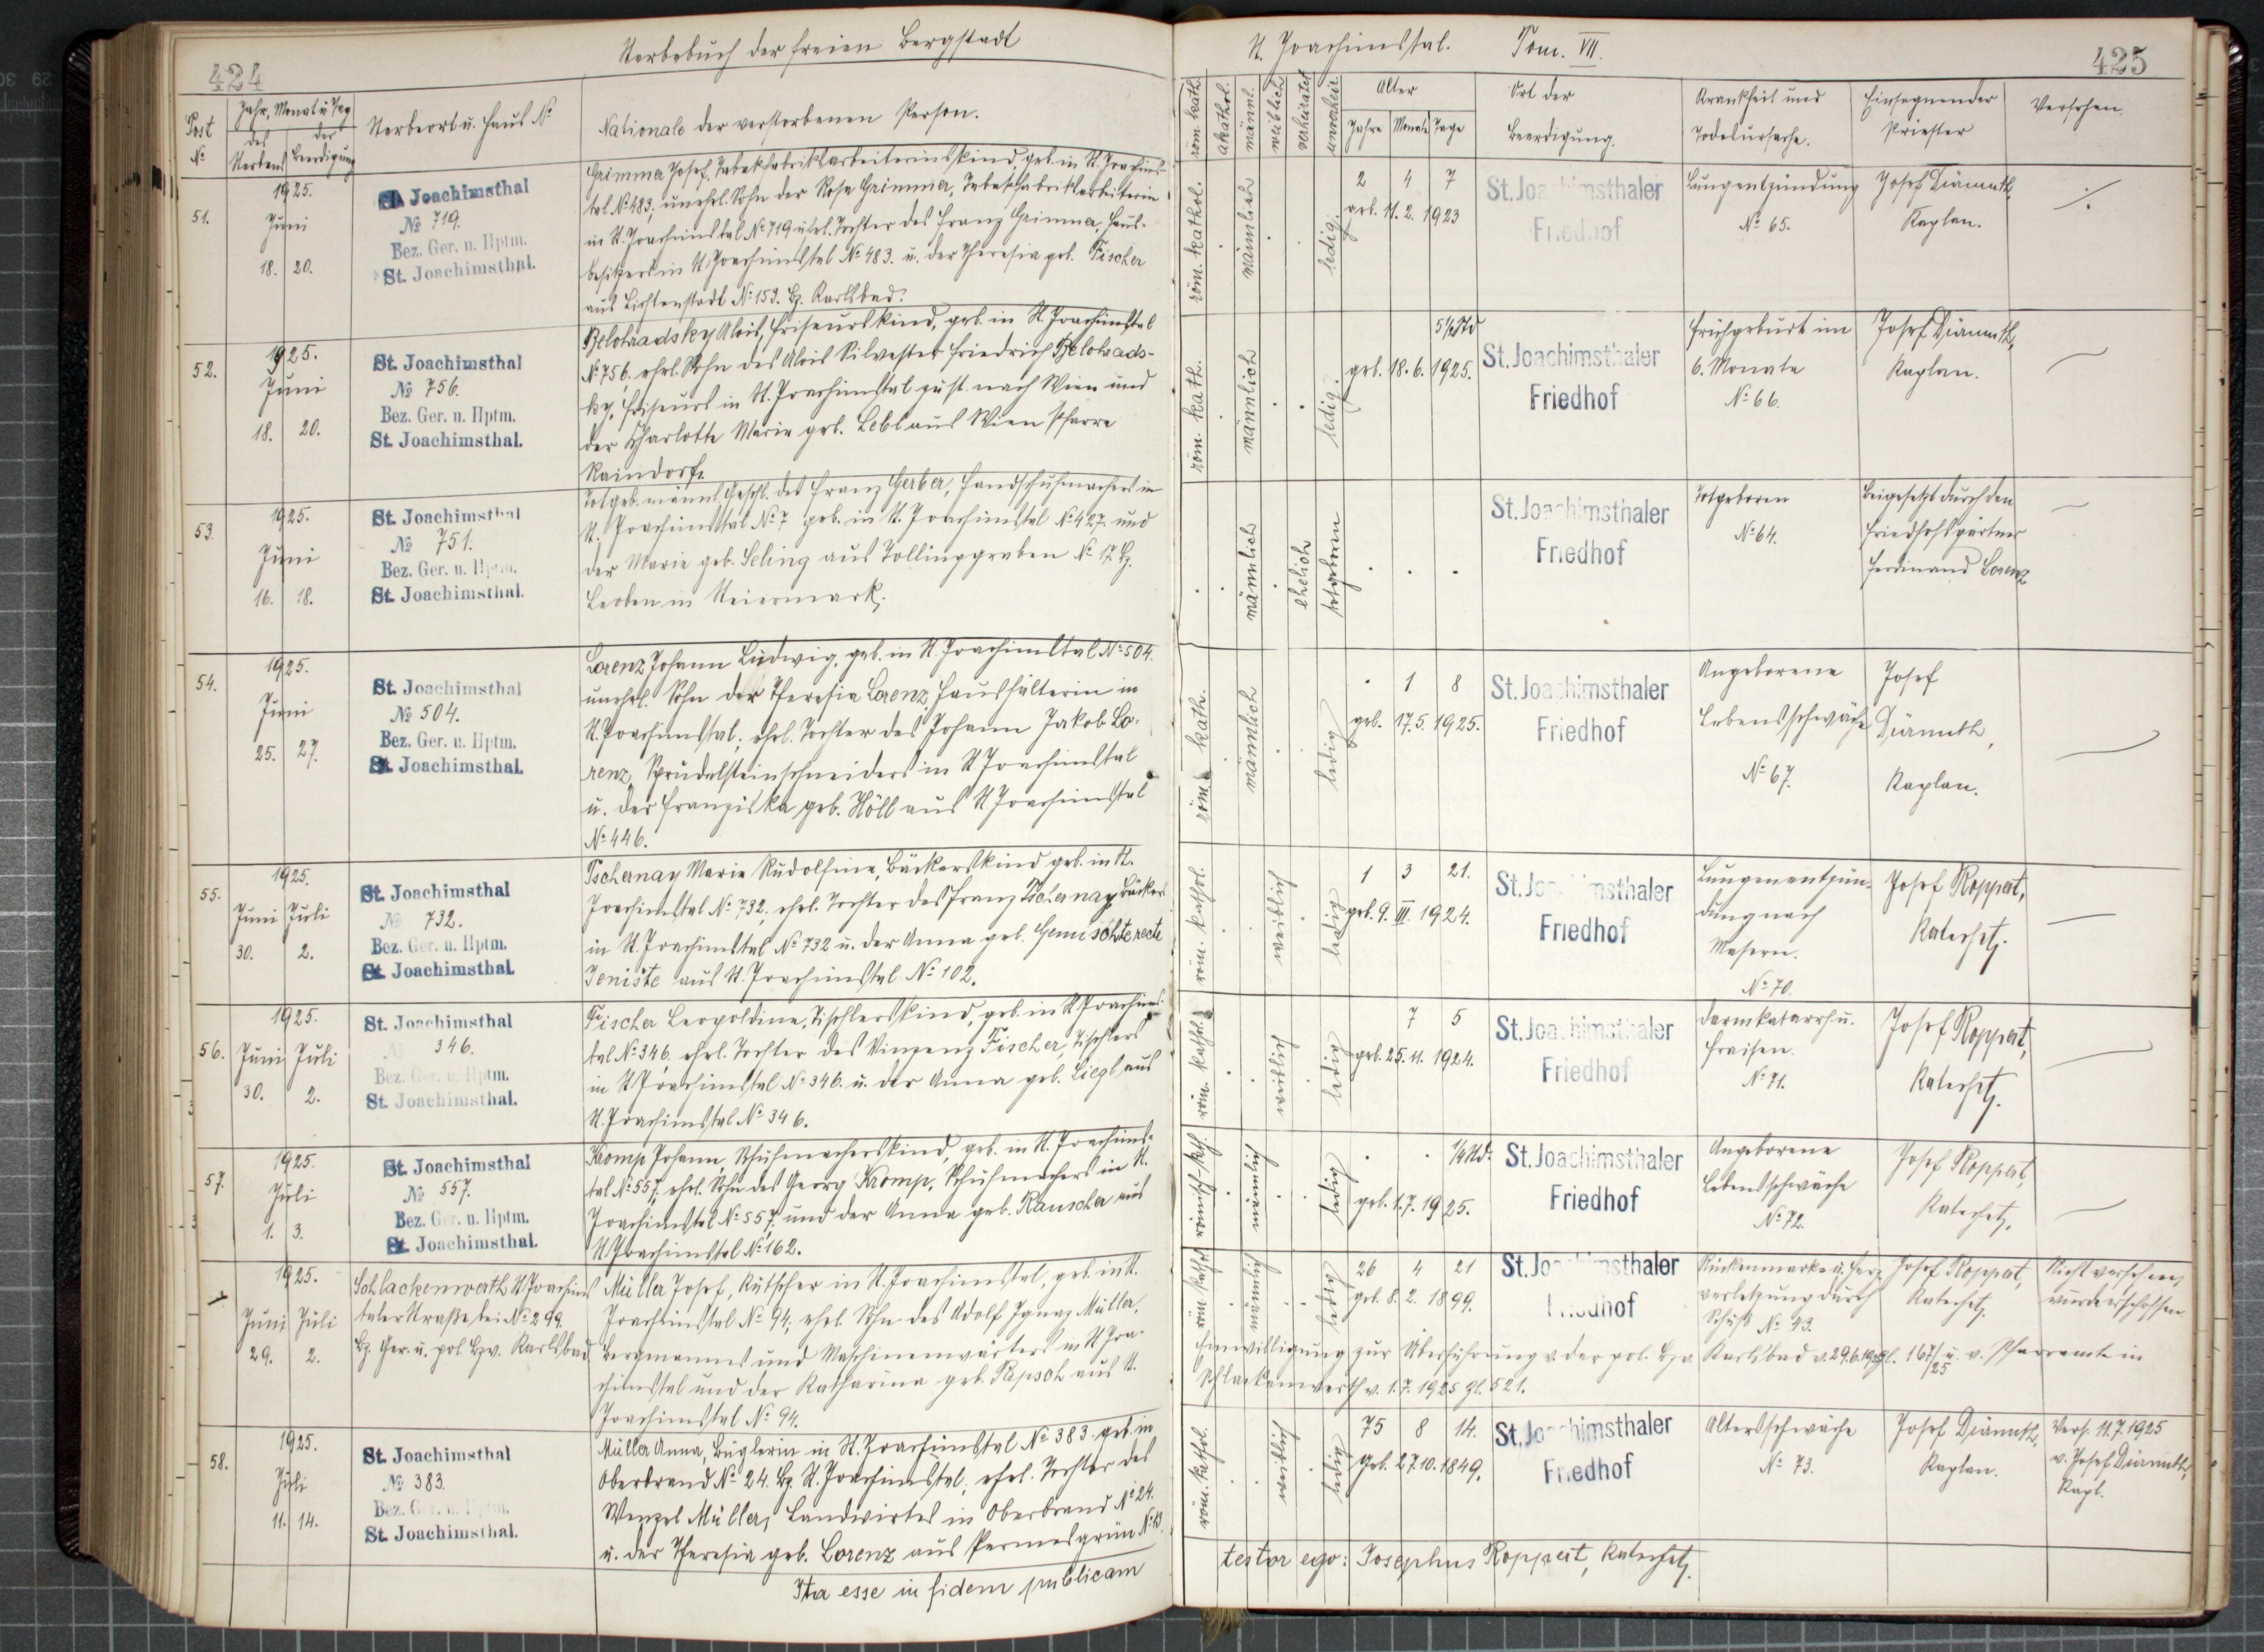 424
Sterbebuch der freien Bergstadt
Post
№
Jahr, Monat u Tag
des
Sterbens
der
Beerdigung
Sterbeort u. Haus №
Nationale der verstorbenen Person.
51.
1925.
Juni
18. 20.
St. Joachimsthal
№ 719.
Bez. Ger. u. Hptm.
St. Joachimsthal.
Grimmer Josef, Tabakfabriksarbeiterinskind, geb. in St. Joachims-
tal № 483, unehel. Sohn der Rosa Grimmer, Tabakfabriksarbeiterin
in St. Joachimstal № 719 u. ehl. Tochter des Franz Grimmer, Haus-
besitzers in St. Joachimstal № 483. u. der Theresia geb. Fischer
aus Lichtenstadt № 153. Bz. Karlsbad.
52.
1925.
Juni
18. 20.
St. Joachimsthal
№ 756.
Bez. Ger. u. Hptm.
St. Joachimsthal.
Belohradsky Alois, Friseurskind, geb. in St. Joachimstal
№ 756. ehel. Sohn des Alois Silvester Friedrich Belohrads-
ky, Friseurs in St. Joachimstal zust. nach Wien und
der Charlotte Maria geb. Lebl aus Wien Pfarre
Raindorf.
53.
1925.
Juni
16. 18.
St. Joachimsthal
№ 751.
Bez. Ger. u. Hptm.
St. Joachimsthal.
Totgeb. männl. Geschl. des Franz Gerber, Handschuhmachers in
St. Joachimstal № 7 geb. in St. Joachimstal № 427. und
der Marie geb. Seling aus Tollinggraben № 17. Bz.
Leoben in Steiermark.
54.
1925.
Juni
25. 27.
St. Joachimsthal
№ 504.
Bez. Ger. u. Hptm.
St. Joachimsthal.
Lorenz Johann Ludwig, geb. in St. Joachimstal № 504.
unehel. Sohn der Theresia Lorenz, Haushälterin in
St. Joachimstal, ehel. Tochter des Johann Jakob Lo-
renz, Sprudelsteinschneiders in St. Joachimstal
u. der Franziska geb. Höll aus St. Joachimstal
№ 446.
55.
1925.
Juni Juli
30. 2.
St. Joachimsthal
№ 732.
Bez. Ger. u. Hptm.
St. Joachimsthal.
Tschernay Marie Rudolfine, Bäckerskind geb. in St.
Joachimstal № 732, ehel. Tochter des Franz Tschernay Bäckers
in St. Joachimstal № 732 u. der Anna geb. Gemischte recte
Jeniste aus St. Joachimstal № 102.
56.
1925.
Juni Juli
30. 2.
St. Joachimsthal
346.
Bez. Ger. u. Hptm.
St. Joachimsthal.
Fischer Leopoldine, Tischlerskind, geb. in St. Joachims-
tal № 346, ehel. Tochter des Vinzenz Fischer, Tischlers
in St. Joachimstal № 346. u. der Anna geb. Liegl aus
St. Joachimstal № 346.
57.
1925.
Juli
1. 3.
St. Joachimsthal
№ 557.
Bez. Ger. u. Hptm.
St. Joachimsthal.
Kromp Johann, Schuhmacherskind, geb. in St. Joachims-
tal № 557, ehel. Sohn des Georg Kromp, Schuhmachers in St.
Joachimstal № 557, und der Anna geb. Rauscher aus
St. Joachimstal № 162.
1925.
Juni Juli
29. 2.
Schlackenwerth St. Joachims
taler Straße bei № 299.
Bz. Ger. u. pol. Bzv. Karlsbad
Müller Josef, Kutscher in St. Joachimstal, geb. in St.
Joachimstal № 94; ehel. Sohn des Adolf Ignaz Müller,
Bergmannes und Maschinenwärters in St. Joa-
chimstal und der Katharina geb. Papsch aus St.
Joachimstal № 94.
58.
1925.
Juli
11. 14.
St. Joachimsthal
№ 383.
Bez. Ger. u. Hptm.
St. Joachimsthal.
Müller Anna, Büglerin in St. Joachimstal № 383. geb. in
Oberbrand № 24. Bz. St. Joachimstal, ehel. Tochter des
Wenzel Müller, Landwirtes in Oberbrand № 24.
u. der Theresia geb. Lorenz aus Permesgrün № 13.
Ita esse in fidem publicam
St. Joachimstal. Tom. VII.
425
röm. kath.
akathol.
männl.
weiblich
verheiratet
Alter
Jahre Monate Tage
Ort der
Beerdigung.
Krankheit und
Todesursache.
Einsegnender
Priester
Versehen.
röm. kathol.
männlich
ledig.
2 4 7
geb. 11. 2. 1923
St. Joachimsthaler
Friedhof
Lungentzündung
№ 65.
Josef Diamuth,
Kaplan.
röm. kath.
männlich
ledig.
5½ Std
geb. 18. 6. 1925.
St. Joachimsthaler
Friedhof
Frühgeburt im
6. Monate
№ 66.
Josef Diamuth,
Kaplan.
männlich
ehelich
totgeboren
St. Joachimsthaler
Friedhof
Totgeboren
№ 64.
Beigesetzt durch den
Friedhofsgärtner
Ferdinand Lorenz
röm. kath.
männlich
ledig
1 8
geb. 17. 5. 1925.
St. Joachimsthaler
Friedhof
Angeborene
Lebensschwäche
№ 67.
Josef
Diamuth,
Kaplan.
röm. kathol.
weiblich
ledig
1 3 21.
geb. 9. III. 1924.
St. Joachimsthaler
Friedhof
Lungenentzün-
dung nach
Masern.
№ 70.
Josef Roppert,
Katechet.
röm. kathl.
weiblich
ledig
7 5
geb. 25. 11. 1924.
St. Joachimsthaler
Friedhof
Darmkatarrh u.
Fraisen.
№ 71.
Josef Roppert,
Katechet.
römisch-kath.
männlich
ledig
¼ Std.
geb. 1. 7. 1925.
St. Joachimsthaler
Friedhof
Angeborene
Lebensschwäche
№ 72.
Josef Roppert,
Katechet.
röm. kath.
männlich
ledig
26 4 21
geb. 8. 2. 1899.
St. Joachimsthaler
Friedhof
Rückenmarks u. Herz
verletzung durch
Schuß № 43.
Josef Roppert,
Katechet.
Nicht versehen,
wurde erschossen.
Einwilligung zur Überführung v. der pol. Bzv. Karlsbad v. 29. 6. 1925 Zl. 167/25 u. v. Pfarramte in
Schlackenwerth v. 1. 7. 1925 Zl. 521.
röm. kathol.
weiblich
ledig
75 8 14.
Geb. 27. 10. 1849.
St. Joachimsthaler
Friedhof
Altersschwäche
№ 73.
Josef Diamuth,
Kaplan.
Vers. 11. 7. 1925
v. Josef Diamuth,
Kapl.
testor ego: Josephus Roppert, Katechet.